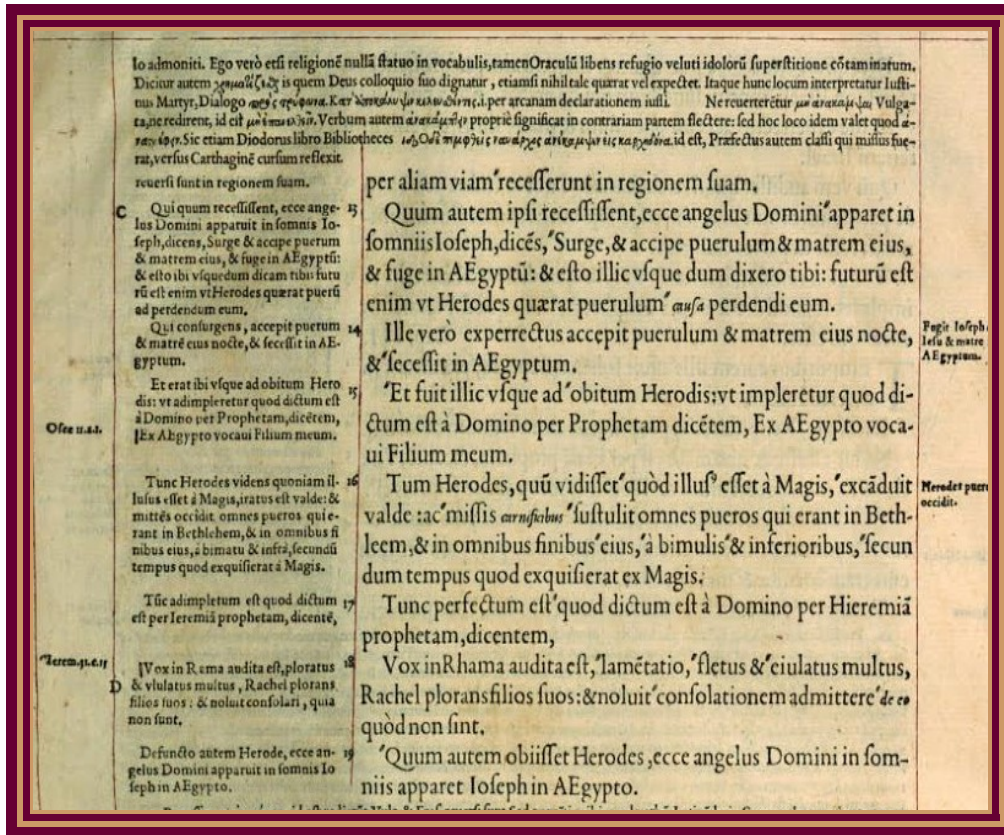 lo admoniti. Ego verò etſi religionē nullā ſtatuo in vocabulis, tamen Oraculū libens refugio veluti idolorū ſuperſtitione cōtaminatum.
Dicitur autem is quem Deus colloquio ſuo dignatur, etiamſi nihil tale quærat vel expectet. Itaque hunc locum interpretatur Iuſti-
nus Martyr, Dialogo .i. per arcanam declarationem iuſſi. Ne reuerterētur Vulga-
ta, ne redirent, id eſt Verbum autem propriè ſignificat in contrariam partem flectere: ſed hoc loco idem valet quod
Sic etiam Diodorus libro Bibliotheces id eſt, Præfectus autem claſſi qui miſſus fue-
rat, verſus Carthaginē curſum reflexit.
reuerſi ſunt in regionem ſuam.
C Qui quum receſſiſſent, ecce ange-
lus Domini apparuit in ſomnis Io-
ſeph, dicens, Surge & accipe puerum
& matrem eius, & fuge in AEgyptū:
& eſto ibi vſquedum dicam tibi: futu
rū eſt enim vt Herodes quærat puerū
ad perdendum eum.
Qui conſurgens, accepit puerum
& matrē eius nocte, & ſeceſſit in AE-
gyptum.
Osee 11.a.1.
Et erat ibi vſque ad obitum Hero
dis: vt adimpleretur quod dictum eſt
à Domino per Prophetam, dicētem,
Ex AEgypto vocaui Filium meum.
Tunc Herodes videns quoniam il-
luſus eſſet à Magis, iratus eſt valde: &
mittēs occidit omnes pueros qui e-
rant in Bethlehem, & in omnibus fi
nibus eius, a bimatu & infrà, ſecundū
tempus quod exquiſierat à Magis.
Tūc adimpletum eſt quod dictum
eſt per Ieremiā prophetam, dicentē,
Vox in Rama audita eſt, ploratus
D & vlulatus multus, Rachel plorans
filios ſuos: & noluit conſolari, quia
non ſunt.
Defuncto autem Herode, ecce an-
gelus Domini apparuit in ſomnis Io
ſeph in AEgypto.
per aliam viam ′receſſerunt in regionem ſuam.
13 Quum autem ipſi receſſiſſent, ecce angelus Domini ′apparet in
ſomniis Ioſeph, dicēs, ′Surge, & accipe puerulum & matrem eius,
& fuge in AEgyptū: & eſto illic vſque dum dixero tibi: futurū eſt
enim vt Herodes quærat puerulum ′ cauſa perdendi eum.
14 Ille verò experrectus accepit puerulum & matrem eius nocte,
& ′ſeceſſit in AEgyptum.
Fugit Ioſeph
Ieſu & matre
AEgyptum.
15 ′Et fuit illic vſque ad ′obitum Herodis: vt impleretur quod di-
ctum eſt à Domino per Prophetam dicētem, Ex AEgypto voca-
ui Filium meum.
16 Tum Herodes, quū vidiſſet ′quòd illuſ⁹ eſſet à Magis, ′excāduit
valde: ac ′miſſis carnificibus ′ſuſtulit omnes pueros qui erant in Beth-
leem, & in omnibus finibus ′eius, ′à bimulis ′& inferioribus, ′ſecun
dum tempus quod exquiſierat ex Magis.
Herodes puer
occidit.
17 Tunc perfectum eſt ′quod dictum eſt à Domino per Hieremiā
prophetam, dicentem,
18 Vox in Rhama audita eſt, ′lamētatio, ′fletus & ′eiulatus multus,
Rachel plorans filios ſuos: & noluit ′conſolationem admittere ′ de eo
quòd non ſint.
19 ′Quum autem obiiſſet Herodes, ecce angelus Domini in ſom-
niis apparet Ioſeph in AEgypto.